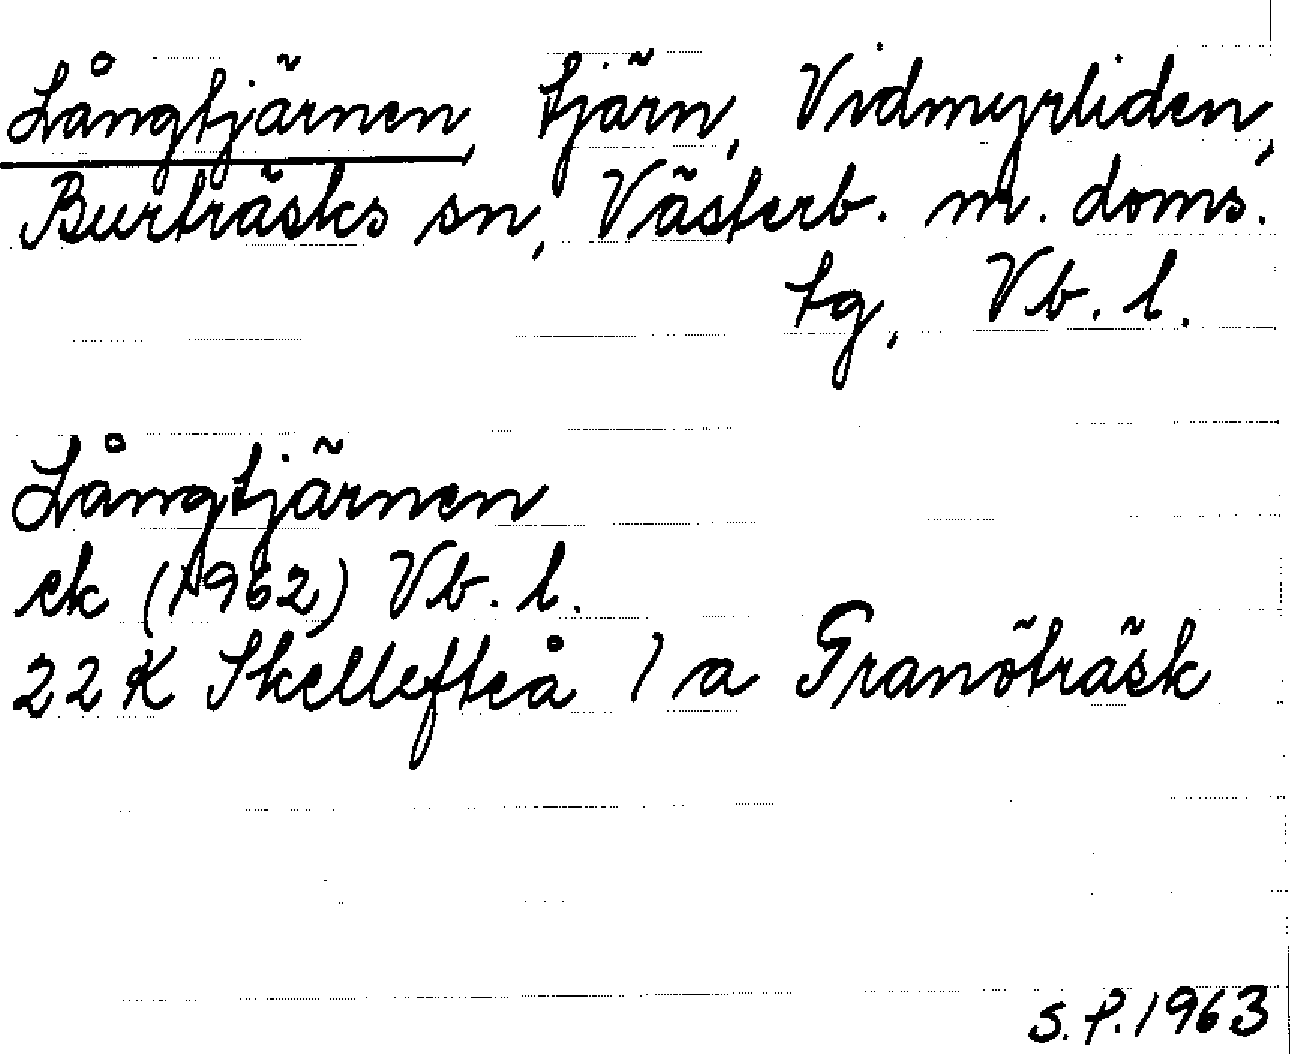 Långtjärnen, tjärn, Vidmyrliden,
Burträsks sn, Västerb. m. doms.
tg, Vb. l.
Långtjärnen
ek (1962) Vb. l.
22 K Skellefteå 1 a Granöträsk
S.P. 1963